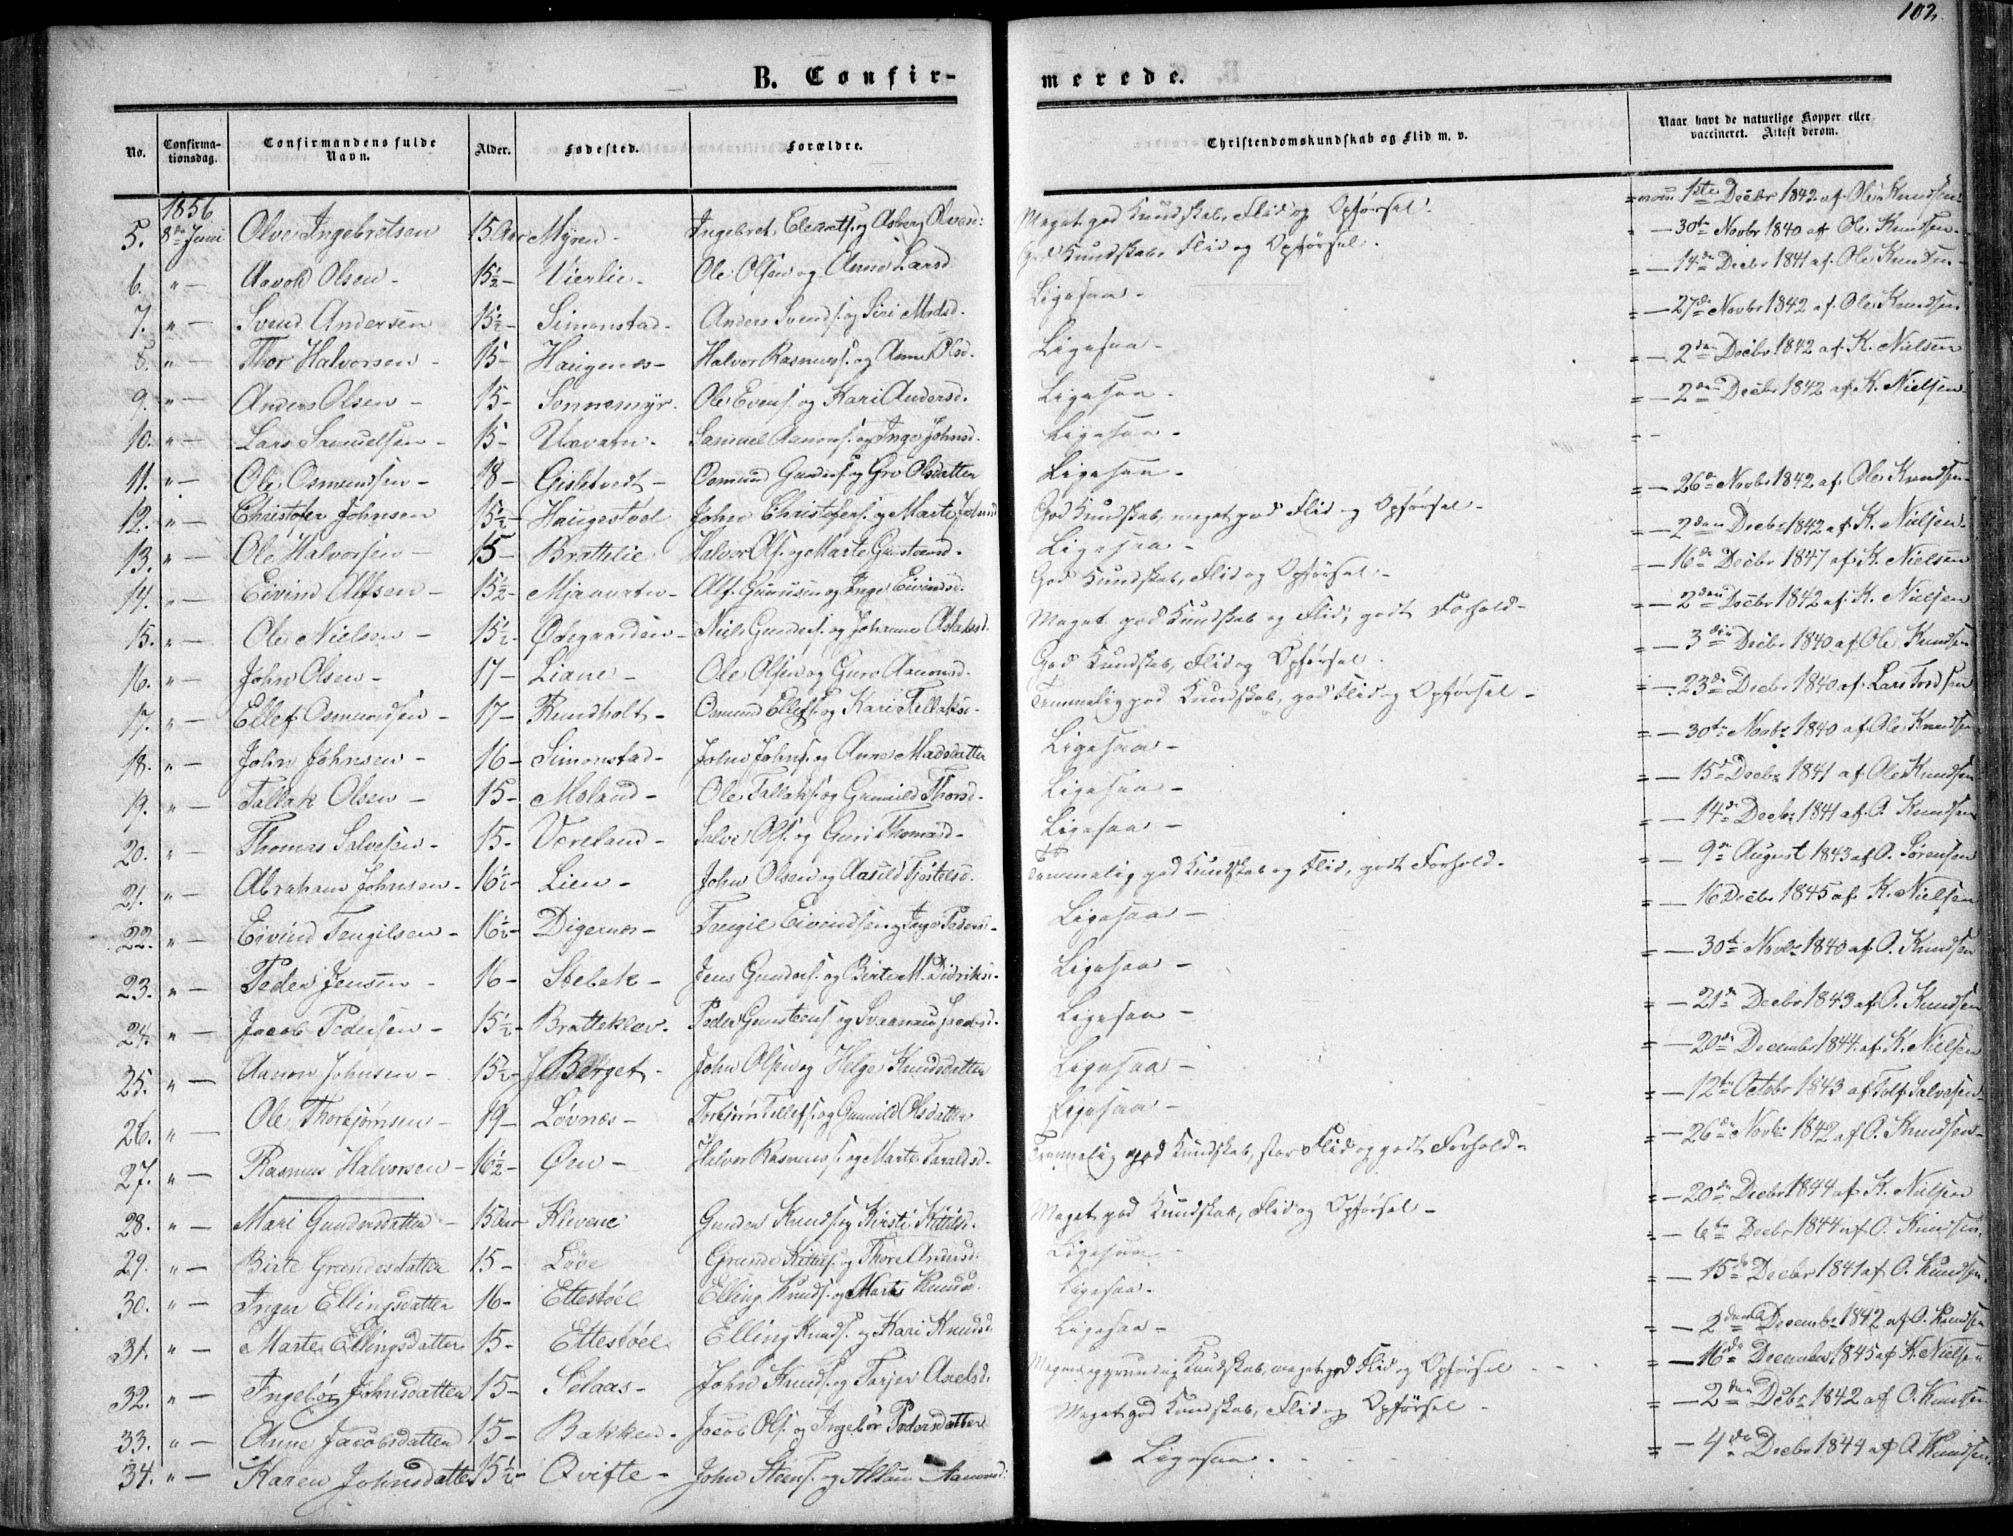 102.
B. Confir-
merede.
No.
Confirma-
tionsdag.
Confirmandens fulde
Navn.
Alder.
Fødested.
Forældre.
Christendomskundskab og Flid m. v.
Naar havt de naturlige Kopper eller
vaccineret. Attest derom.
1856
5. 8de Juni Olve Ingebretsen 15 Aar Myren - Ingebret og Asberg Meget god Kundskab, Flid og Opførsel. 1ste Decbr 1842 af Ole Knudsen
6. " — Aavold Olsen - 15½ - Vierlie - Ole Olsen og Anne Larsd God Kundskab, Flid og Opførsel. — 30te Novbr 1840 af Ole Knudsen
7. " — Svend Andersen 15½ - Simonstad - Anders Svends. og Siri Madsd. Ligesaa - — 14de Decbr 1841 af Ole Knudsen
8. " — Thor Halvorsen - 15 - Haugenes - Halvor Rasmus. og Anne Olsd. Ligesaa - — 27de Novbr 1842 af Ole Knudsen
9. " — Anders Olsen - 15 - Sonnemyr. Ole Evens. og Kari Andersd. Ligesaa - — 2den Decbr 1842 af K. Nielsen
10. " — Lars Samuelsen - 15 - Uævatn - Samuel Aanons. og Inge Johnsd. Ligesaa - — 2den Decbr 1842 af K. Nielsen
11. " — Ole Osmundsen - 18 - Gisletvedt - Osmund Gunders. og Gro Olsdatter Ligesaa -
12. " — Christofer Johnsen 15½ - Haugestøel John Christofers. og Marte God Kundskab, meget god Flid og Opførsel - — 26de Novbr 1842 af Ole Knudsen
13. " — Ole Halvorsen - 15 - Brattelie Halvor Ols. og Marte Gunstensd. Ligesaa - — 2den Decbr 1842 af K. Nielsen.
14. " — Eivind Alfsen - 15½ - Mjaavatn - Alf og Inge Eivindsd. God Kundskab, Flid og Opførsel - — 16de Decbr 1847 af K. Nielsen
15. " — Ole Nielsen - 15½ - Ødegaarden - Niels Gunders. og Johanne Aslaksd. Meget god Kundskab og Flid, godt Forhold - — 2den Decbr 1842 af K. Nielsen
16. " — John Olsen - 17 - Liane - Ole Olsen og Guro Aanonsd. God Kundskab, Flid og Opførsel - — 3die Decbr 1840 af Ole Knudsen
17. " — Ellef Osmundsen - 17 - Rundholt - Osmund Ellefs. og Kari Tellaks. - Temmelig god Kundskab, god Flid og Opførsel - — 23de Decbr 1840 af Lars
18. " — John Johnsen - 16 - Simonstad - John Johns. og Anne Madsdatter Ligesaa - — 30te Novbr 1840 af Ole Knudsen
19. " — Tallak Olsen - 15 - Moland - Ole Tallaks. og Gunnild Thorsd. Ligesaa - — 15de Decbr 1841 af Ole Knudsen
20. " — Thomas Salvesen - 15 - Voreland - Salve Ols. og Guri Thomasd - Ligesaa - — 14de Decbr 1841 af O. Knudsen
21. " — Abraham Johnsen - 16½ - Lien - John Olsen og Aasild Tjostelsd. Temmelig god Kundskab og Flid, godt Forhold - — 9de August 1843 af O. Sørensen
22. " — Eivind Tengilsen - 16½ - Digernes - Tengil Eivindsen og Inge Peders - Ligesaa - — 16 Decbr 1845 af K. Nielsen
23. " — Peder Jensen - 16 - Stelek - Jens Gunders. og Birte M. Didriks - Ligesaa - — 30te Novbr 1840 af O. Knudsen
24. " — Jacob Pedersen - 15½ - Bratteklev. Peder Gunstens. og Svaanau Jacobsd. Ligesaa - — 21de Decbr 1843 af O. Knudsen
25. " — Aanon Johnsen - 15½ - Berget - John Olsen og Helge Knudsdatter Ligesaa - — 20de December 1844 af K. Nielsen
26. " — Ole Thorbjørnsen - 19 - Løvnes - Torbjørn Tellefs. og Gunnild Olsdatter Ligesaa - — 12te Octobr 1843 af Tolf Salvesen
27. " — Rasmus Halvorsen - 16½ - Øen - Halvor Rasmus. og Marte Taralds - Temmelig god Kundskab, stor Flid og godt Forhold - — 26de Novbr 1842 af O. Knudsen
28. " — Mari Gundersdatter - 15 Aar Klevene Gunder Knuds. og Kirsti Kittilsd. Meget god Kundskab, Flid og Opførsel - — 20de Decbr 1844 af K. Nielsen
29. " — Birte Grundesdatter 15 - Løve Grunde Kittils. og Thore Ligesaa - — 6te Decbr 1844 af O. Knudsen
30. " — Inger Ellingsdatter 16 - Ettestøel Elling Knuds. og Marte Knudsd. Ligesaa - — 15de Decbr 1841 af O. Knudsen
31. " — Marte Ellingsdatter 15 - Ettestøel. Elling Knuds. og Kari Knudsd. Ligesaa - — 2den December 1842 af O. Knudsen
32. " — Ingebør Johnsdatter 15 - Selaas - John Knuds. og Tarjer Axelsd. Kundskab, meget god Flid og Opførsel — 16de December 1845 af K. Nielsen
33. " — Anne Jacobsdatter 15 - Bakken - Jacob Ols. og Ingebør Pedersdatter Meget god Kundskab, Flid og Opførsel - — 2den Decbr 1842 af O. Knudsen
34. " — Karen Johnsdatter 15½ - Qvifte - John Steens. og Aanonsd. Ligesaa. — 4de Decbr 1844 af O. Knudsen.